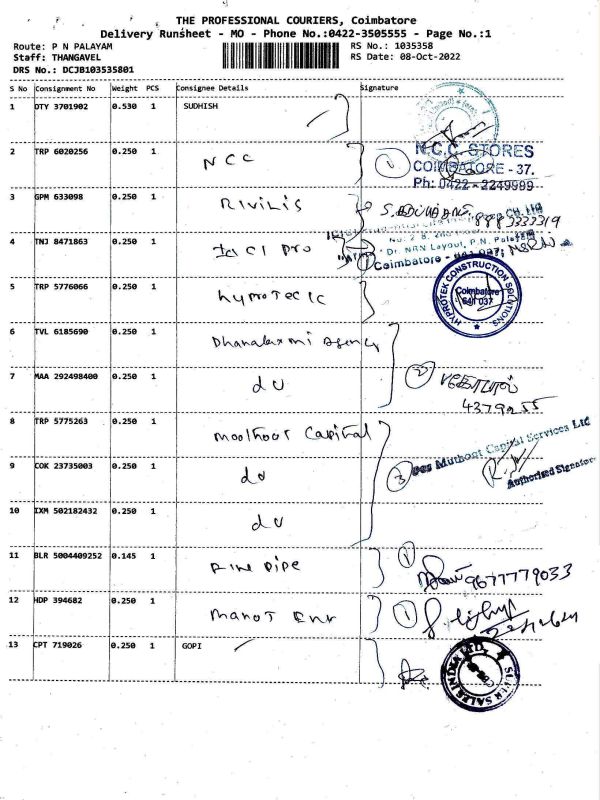 THE PROFESSIONAL COURIERS, Coimbatore
Delivery Runsheet - MO - Phone No.:0422-3505555 - Page No.:1
Route: P N PALAYAM RS No.: 1035358
Staff: THANGAVEL RS Date: 08-Oct-2022
DRS No.: DCJB103535801
S No Consignment No Weight PCS Consignee Details Signature
1 DTY 3701902 0.530 1 SUDHISH
2 TRP 6020256 0.250 1 NCC 1 N.C.C. STORES
COIMBATORE - 37.
Ph: 0422 - 2249999
3 GPM 633098 0.250 1 RIVILIS
8883333319
4 TNJ 8471863 0.250 1 Icici pro
Dr. NRN Layout, P.N. Palayam
Coimbatore - 641 037.
5 TRP 5776066 0.250 1 hyprotecic HYPROTEK CONSTRUCTION SOLUTIONS
Coimbatore
641 037
6 TVL 6185690 0.250 1 Dhanalaxmi Agency
7 MAA 292498400 0.250 1 do 2
4379255
8 TRP 5775263 0.250 1 moothoot Capital
Muthoot Capital Services Ltd
Authorised Signator
9 COK 23735003 0.250 1 do 3
10 IXM 502182432 0.250 1 do
11 BLR 5004409252 0.145 1 Fine pipe 1
9677779033
12 HDP 394682 0.250 1 manot Enr 1
13 CPT 719026 0.250 1 GOPI SUPER SALES INDIA LTD.